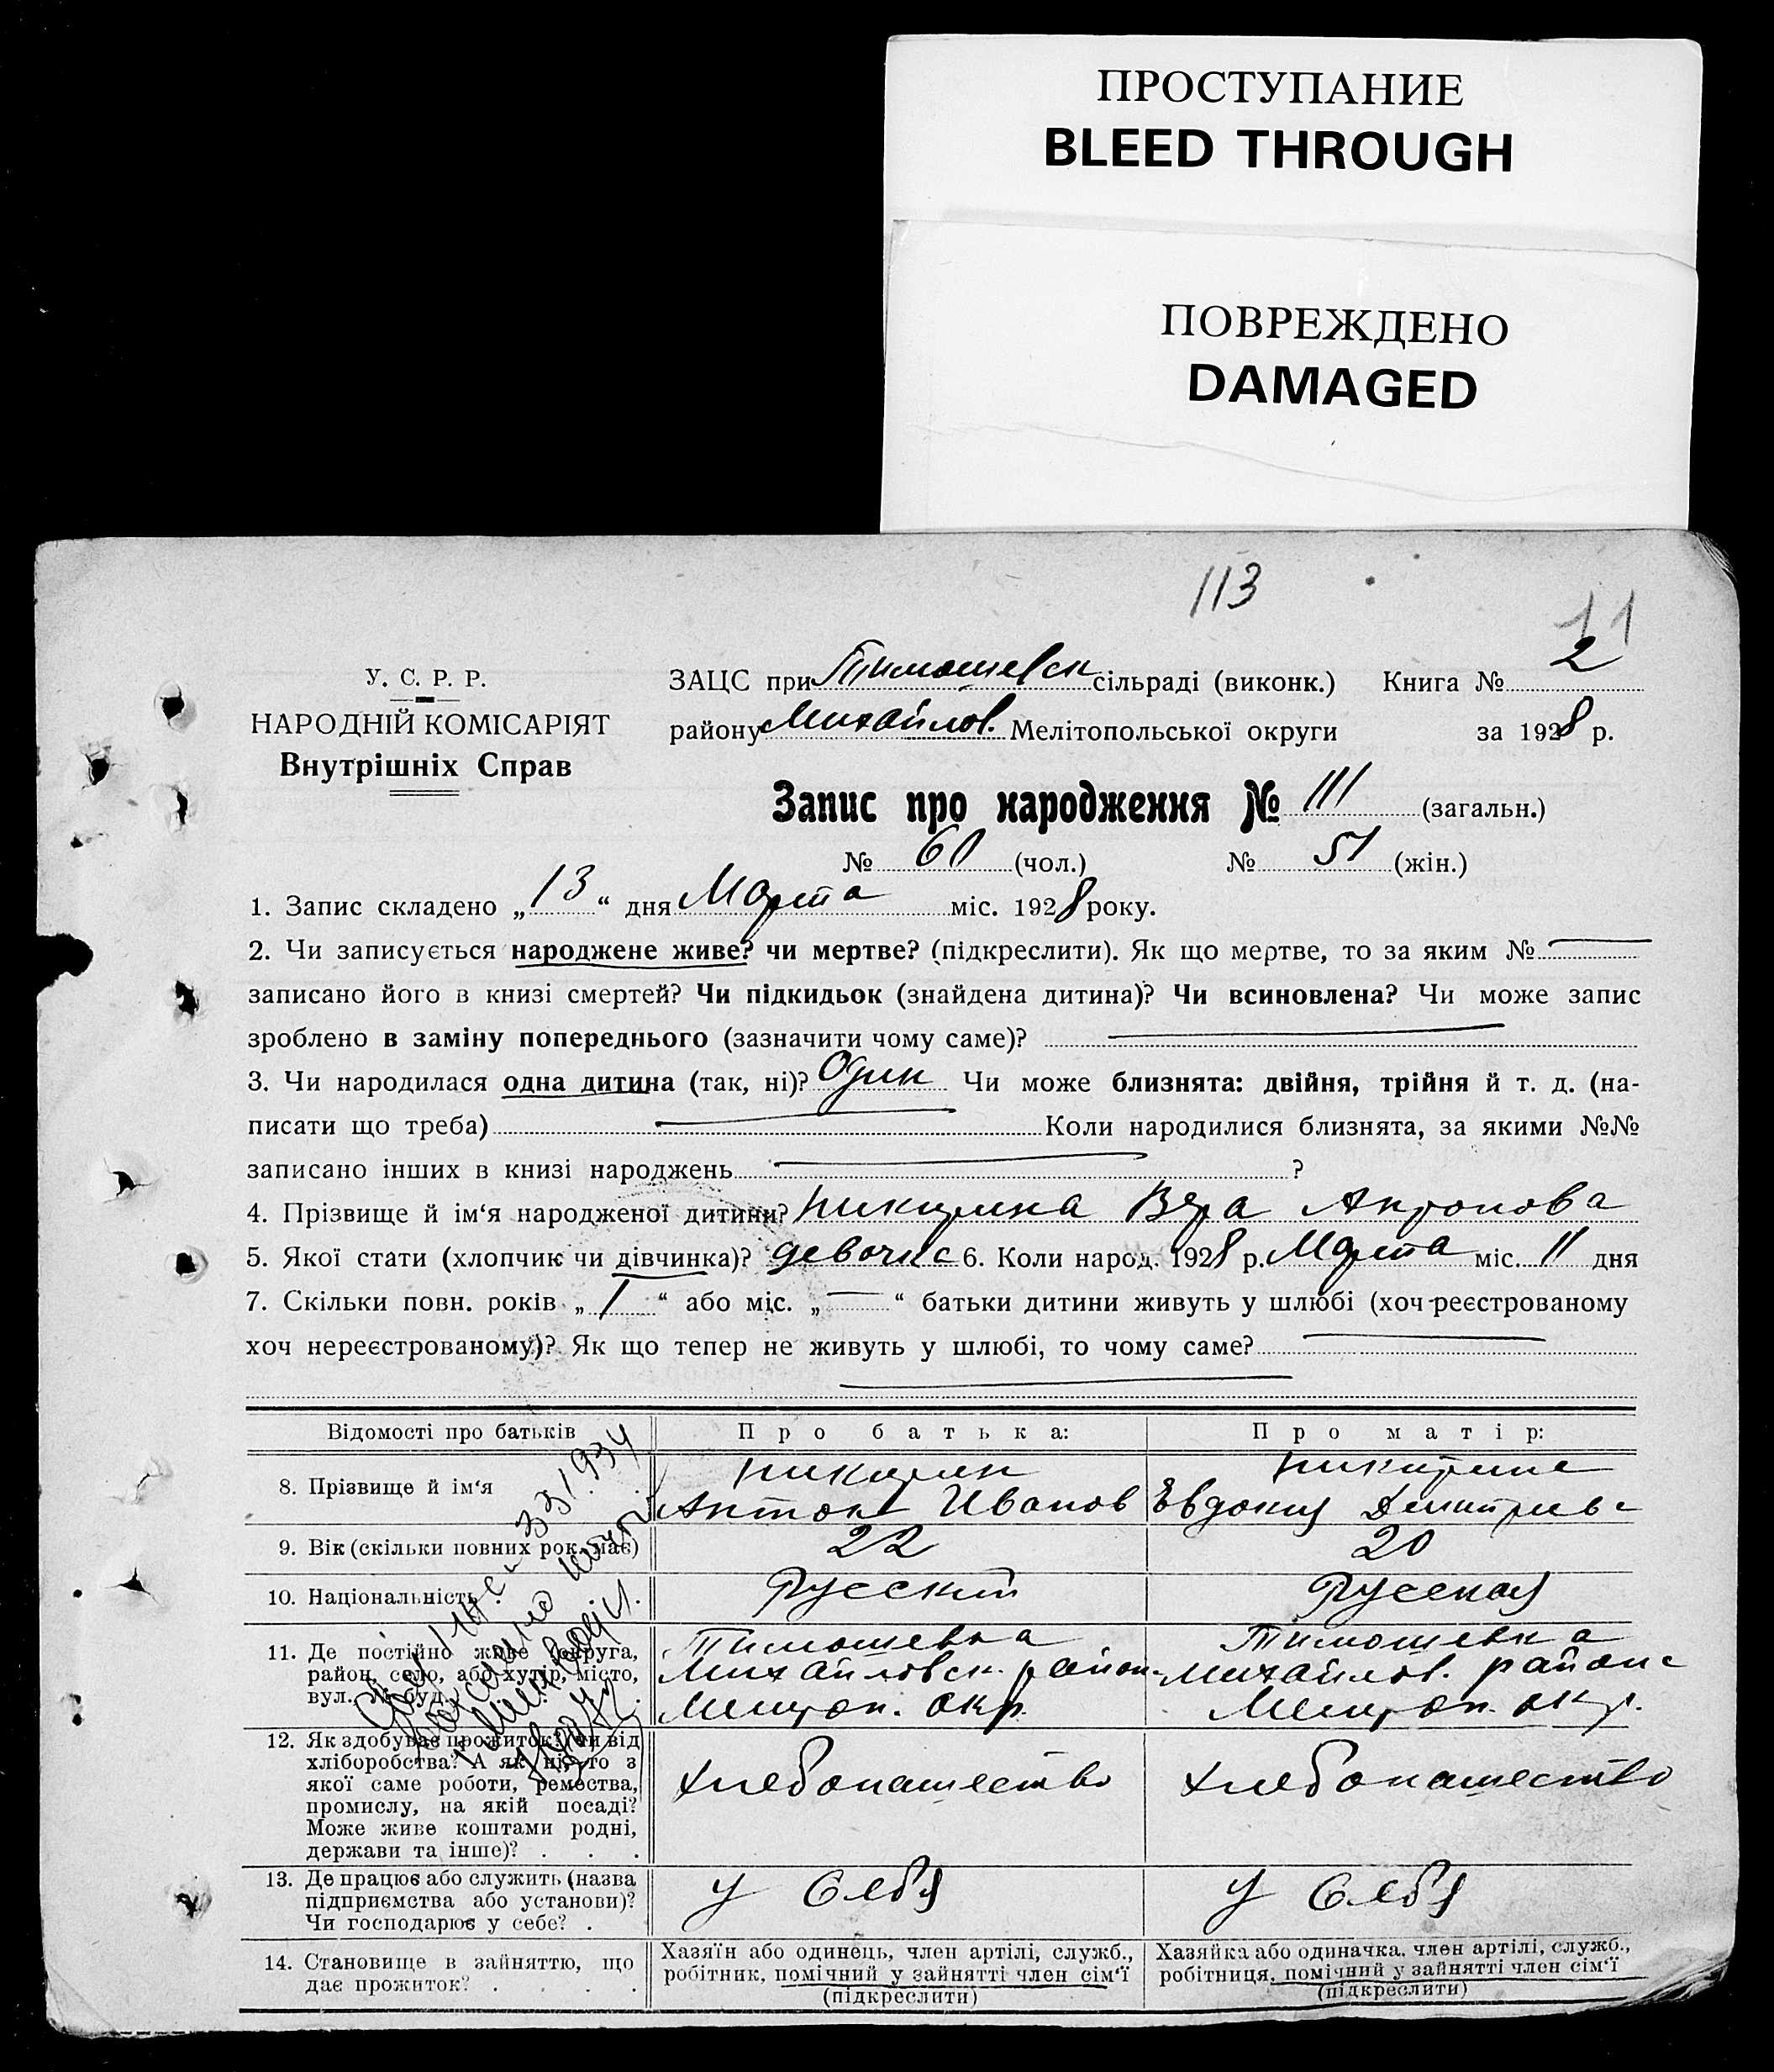 ПРОСТУПАНИЕ
BLEED THROUGH
ПОВРЕЖДЕНО
DAMAGED
113
11
У. С. Р. Р.
НАРОДНІЙ КОМІСАРІЯТ
Внутрішніх Справ
ЗАЦС при Тимошевск сільраді (виконк.) Книга № 2
району Михайлов. Мелітопольської округи за 1928 р.
Запис про народження № 111 (загальн.)
№ 60 (чол.) № 51 (жін.)
1. Запис складено „13“ дня Марта міс. 1928 року.
2. Чи записується народжене живе? чи мертве? (підкреслити). Як що мертве, то за яким №
записано його в книзі смертей? Чи підкидьок (знайдена дитина)? Чи всиновлена? Чи може запис
зроблено в заміну попереднього (зазначити чому саме)?
3. Чи народилася одна дитина (так, ні)? Один Чи може близнята: двійня, трійня й т. д. (на-
писати що треба) Коли народилися близнята, за якими №№
записано інших в книзі народжень ?
4. Прізвище й ім‘я народженої дитини? Никитина Вера Антонова
5. Якої стати (хлопчик чи дівчинка)? девочка 6. Коли народ. 1928 р. Марта міс. 11 дня
7. Скільки повн. років „1“ або міс. „—“ батьки дитини живуть у шлюбі (хоч реєстрованому
хоч нереєстрованому)? Як що тепер не живуть у шлюбі, то чому саме?
Відомості про батьків Про батька: Про матір:
8. Прізвище й ім‘я Никитин Никитина
Антон Иванов Евдокия Дмитриев
9. Вік (скільки повних рок. має) 22 20
10. Національність Русский Русская
11. Де постійно живе (округа, Тимошевка Тимошевка
район, село, або хутір, місто, Михайловск. район Михайлов. района
вул. № буд. Мелитоп. окр. Мелитоп. окр.
12. Як здобуває прожиток? (чи від
хліборобства? А як ні, то з
якої саме роботи, ремества, хлебопашество хлебопашество
промислу, на якій посаді?
Може живе коштами родні,
держави та інше)? . . .
13. Де працює або служить (назва у себя у себя
підприємства або установи)?
Чи господарює у себе? .
14. Становище в зайняттю, що Хазяїн або одинець, член артілі, служб., Хазяйка або одиначка, член артілі, служб.,
дає прожиток? . . . робітник, помічний у зайнятті член сім‘ї робітниця, помічний у зайнятті член сім‘ї
(підкреслити) (підкреслити)